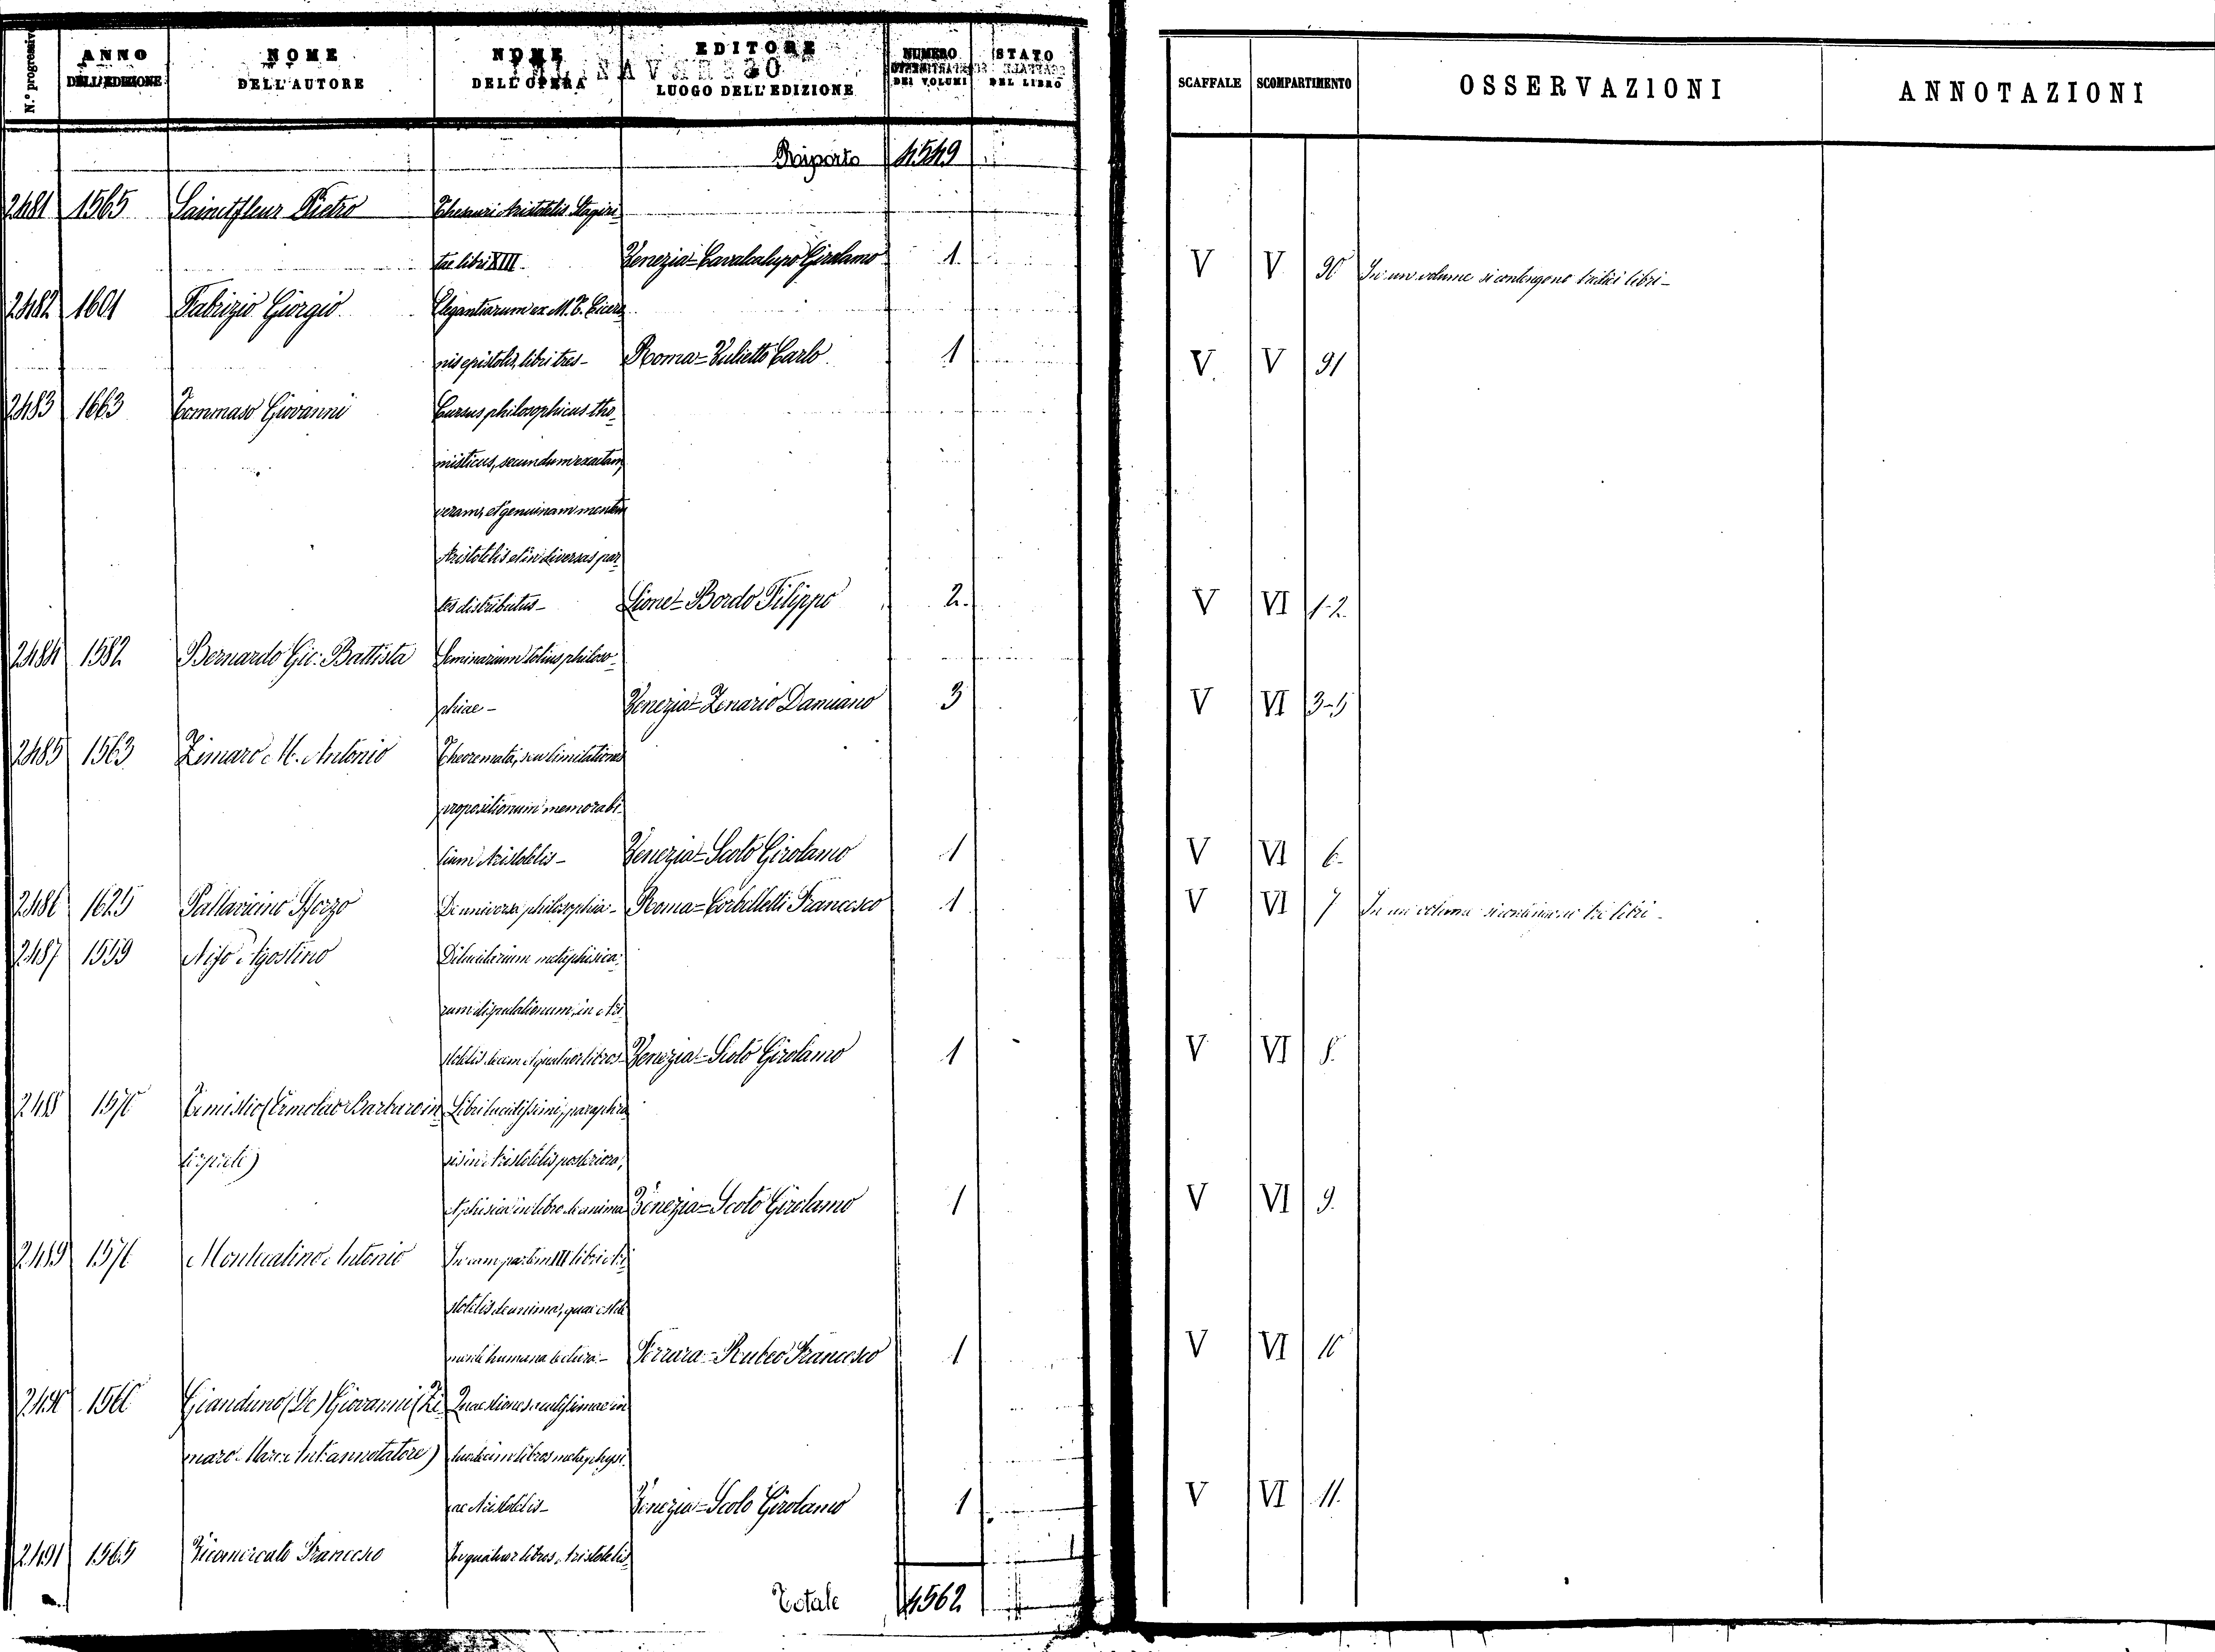 N.º progressivo ANNO DELL'EDIZIONE NOME DELL'AUTORE NOME DELL'OPERA EDITORE LUOGO DELL'EDIZIONE NUMERO DEI VOLUMI STATO DEL LIBRO SCAFFALE SCOMPARTIMENTO OSSERVAZIONI ANNOTAZIONI
Riporto 4549
2481 1565 Sainctfleur Pietro Thesauri Aristotelis Stagiri
tae libri XIII Venezia = Cavalcalupo Girolamo 1. V V 90 In un volume si contengono tredici libri -
2482 1601 Fabrizio Giorgio Elegantiarum ex M. T. Cicero
nis epistolis, libri tres - Roma = Vulietto Carlo 1 V. V 91
2483 1663 Tommaso Giovanni Cursus philosophicus tho
misticus, secundum exactam,
veram, et genuinam mentem
Aristotelis et in diversas par
tes distributus - Lione = Bordo Filippo 2. V VI 1-2.
2484 1582 Bernardo Gio: Battista Seminarium totius philoso
phiae - Venezia = Zenario Damiano 3 V VI 3-5
2485 1563 Zimaro M. Antonio Theoremata, seu limitationes
propositionum memorabi
lium Aristotelis - Venezia = Scoto Girolamo 1 V VI 6.
2486 1625 Pallavicino Sforzo De universa philosophia - Roma = Corbelletti Francesco 1 V VI 7 In un volume si contengono tre libri -
2487 1559 Nifo Agostino Dilucidarium metaphisica
rum disputationum, in Ari
stotelis decem et quatuor libros - Venezia = Scoto Girolamo 1 V VI 8.
2488 1570 Temistio (Ermolao Barbaro in Libri lucidissimi, paraphra
terprete) sis in Aristotelis posteriora,
et phisica in libro de anima Venezia = Scoto Girolamo 1 V VI 9.
2489 1576 Montecatino Antonio In eam partem III libri Ari
stotelis de anima, quae est de
mente humana lectura - Ferrara = Rubeo Francesco 1 V VI 10
2490 1560 Gianduno (De) Giovanni (Zi Quaestiones acutissimae in
maro Marc: Ant: annotatore) duodecim libros metaphysi
cae Aristotelis - Venezia = Scoto Girolamo 1 V VI 11.
2491 1565 Vicomercato Francesco In quatuor libros Aristotelis
Totale 4562